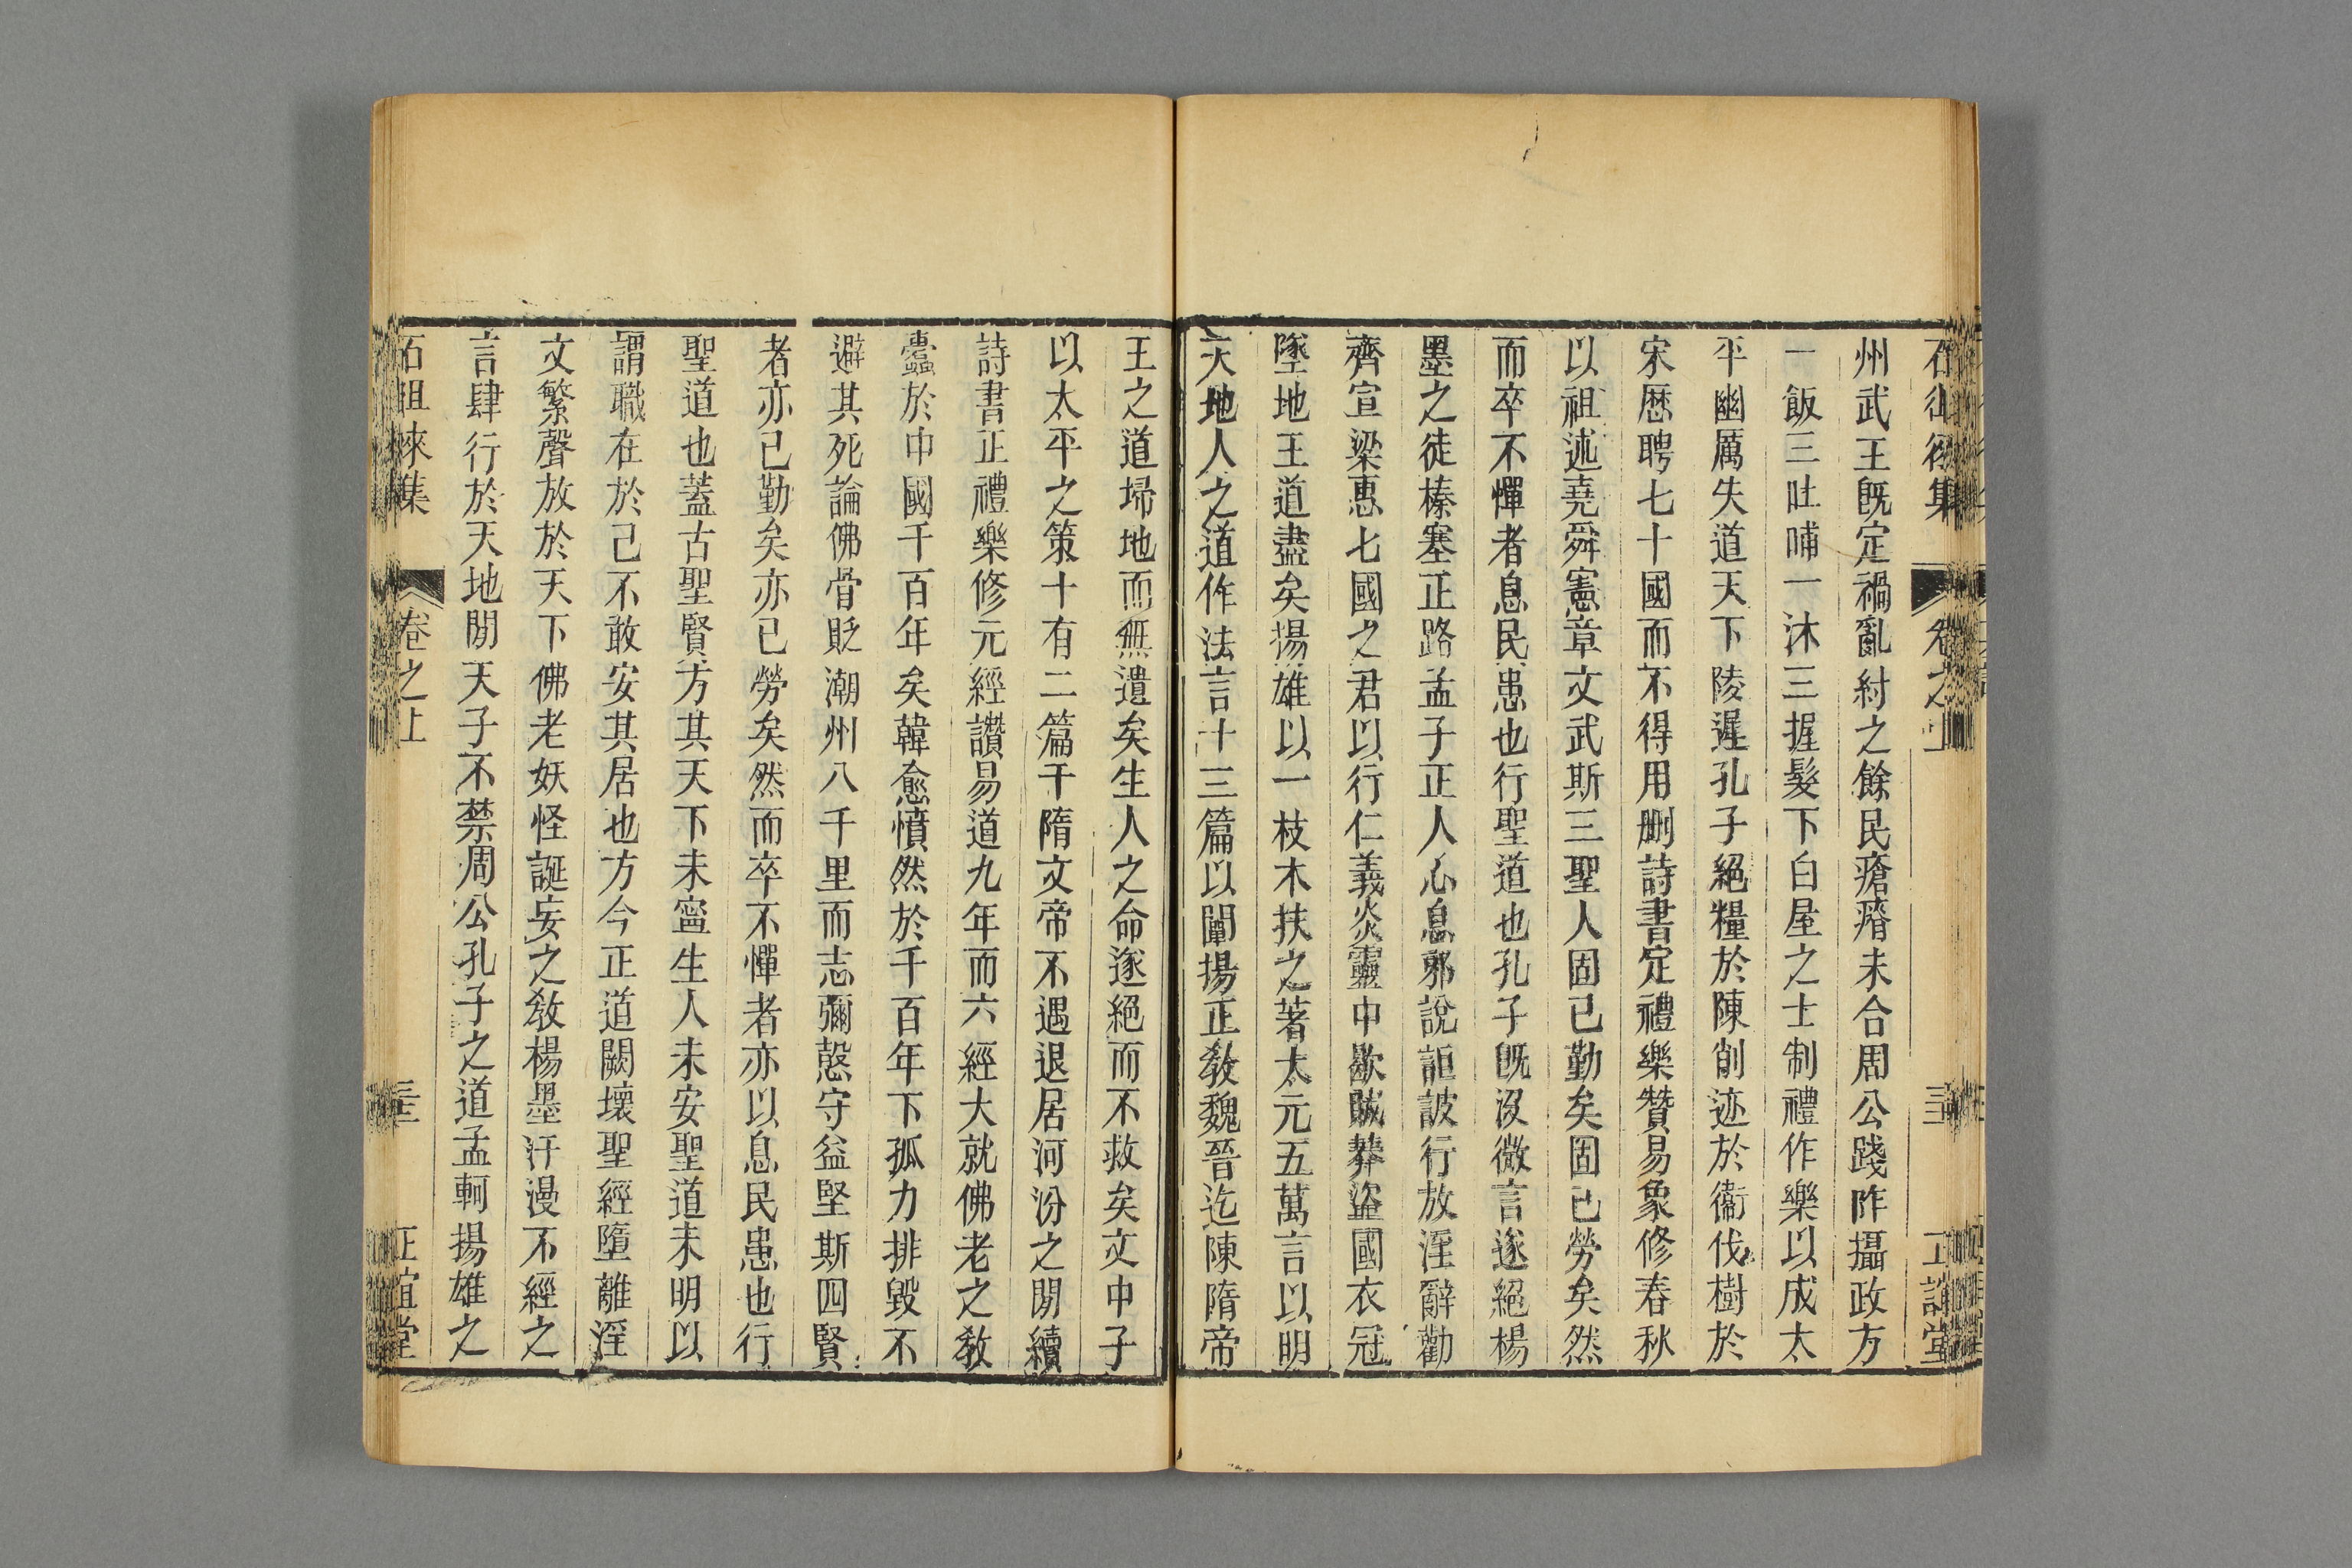 石徂徠集 卷之上 三 正誼堂
州武王旣定禍亂紂之餘民瘡瘠未合周公踐阼攝政方
一飯三吐哺一沐三握髮下白屋之士制禮作樂以成太
平幽厲失道天下陵遲孔子絕糧於陳削迹於衞伐樹於
宋歷聘七十國而不得用删詩書定禮樂贊易象修春秋
以祖述堯舜憲章文武斯三聖人固已勤矣固已勞矣然
而卒不憚者息民患也行聖道也孔子旣沒微言遂絕楊
墨之徒榛塞正路孟子正人心息邪說詎詖行放淫辭勸
齊宣梁惠七國之君以行仁義炎靈中歇賊莽盜國衣冠
墜地王道盡矣揚雄以一枝木扶之著太元五萬言以明
天地人之道作法言十三篇以闡揚正敎魏晉迄陳隋帝
王之道埽地而無遺矣生人之命遂絕而不救矣文中子
以太平之策十有二篇干隋文帝不遇退居河汾之閒續
詩書正禮樂修元經讚易道九年而六經大就佛老之敎
蠹於中國千百年矣韓愈憤然於千百年下孤力排毀不
避其死論佛骨貶潮州八千里而志彌慤守益堅斯四賢
者亦已勤矣亦已勞矣然而卒不憚者亦以息民患也行
聖道也蓋古聖賢方其天下未寧生人未安聖道未明以
謂職在於己不敢安其居也方今正道闕壞聖經隳離淫
文繁聲放於天下佛老妖怪誕妄之敎楊墨汗漫不經之
言肆行於天地閒天子不禁周公孔子之道孟軻揚雄之
石徂徠集 卷之上 三 正誼堂